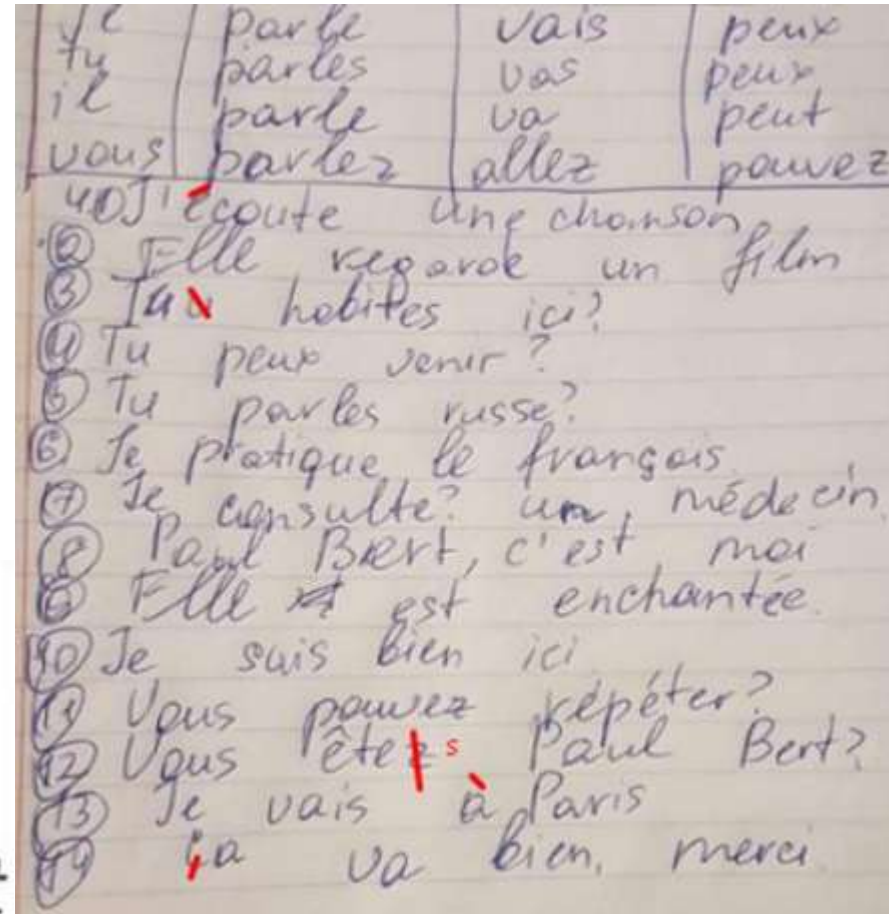 je parle vais peux
tu parles vas peux
il parle va peut
vous parlez allez pouvez
40 J'écoute une chanson
② Elle regarde un film
③ Tu habites ici?
④ Tu peux venir?
⑤ Tu parles russe?
⑥ Je pratique le français
⑦ Je consulte? un médecin
⑧ Paul Bert, c'est moi
⑨ Elle est enchantée.
⑩ Je suis bien ici
⑪ Vous pouvez répéter?
⑫ Vous êtez s Paul Bert?
⑬ Je vais à Paris
⑭ ça va bien, merci